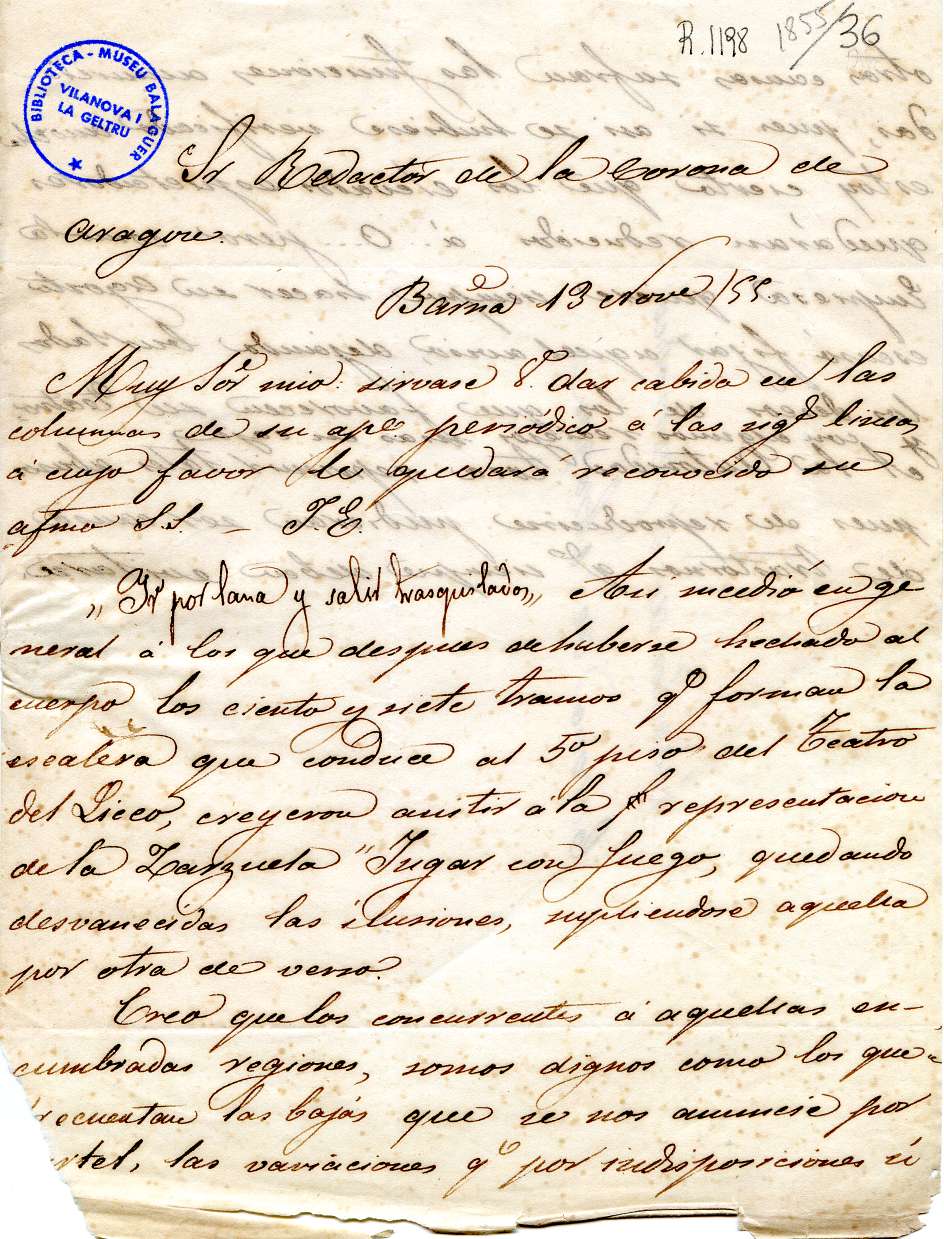 R. 1198 1855/36
BIBLIOTECA - MUSEU BALAGUER
VILANOVA I
LA GELTRU
Sr Redactor de la Corona de
Aragon.
Barna 13 Nove /55.
Muy Sor mio: sirvase V. dar cabida en las
columnas de su apo periódico á las sigs lineas,
á cuyo favor le quedará reconocido su
afmo S.S. - J.E.
"Ir por lana y salir trasquilados," Asi sucedió en ge
neral á los que despues de haberse hechado al
cuerpo los ciento y siete tramos qe forman la
escalera que conduce al 5o piso del Teatro
del Liceo, creyeron asistir á la representacion
de la Zarzuela "Jugar con fuego, quedando
desvanecidas las ilusiones, supliendose aquella
por otra de verso.
Creo que los concurrentes á aquellas en-
cumbradas regiones, somos dignos como los que
frecuentan las bajas que se nos anuncie por
artel, las variaciones qe por indisposiciones ú